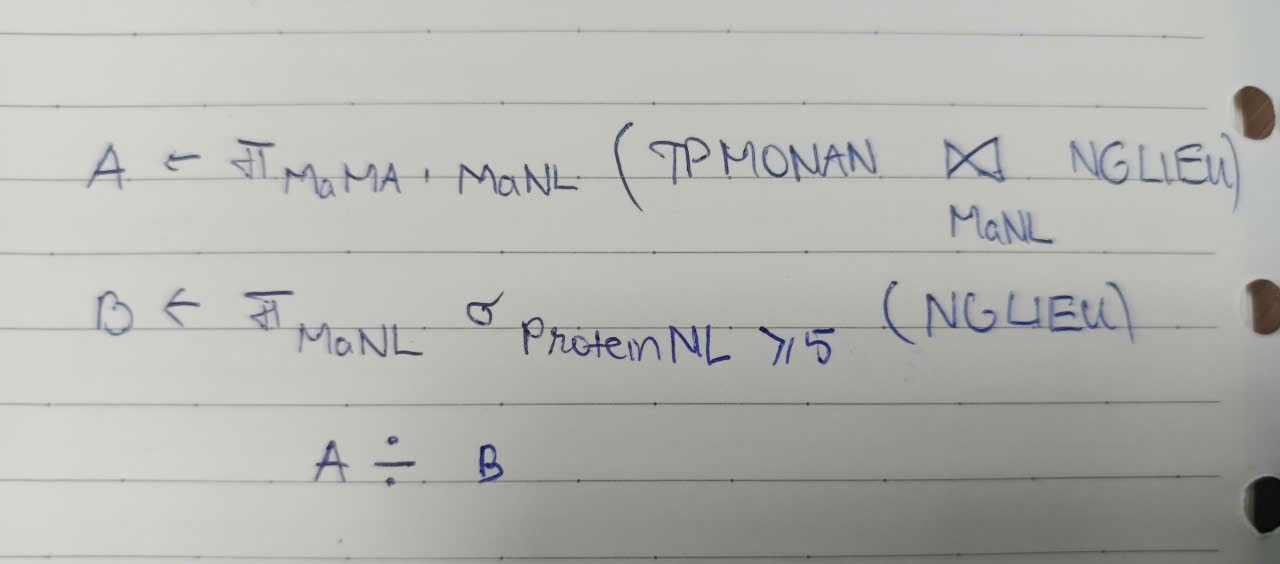 A ← π MaMA, MaNL (TPMONAN ⋈ NGLIEU)
MaNL
B ← π MaNL σ ProteinNL ⩾ 5 (NGLIEU)
A ÷ B